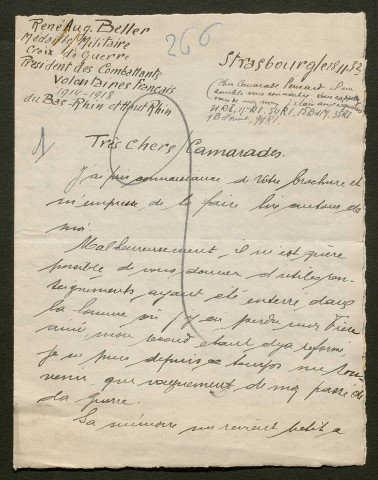 René Aug. Beller
Médaille Militaire
Croix de Guerre
Président des Combattants
Volontaires français
1914-1918
du Bas-Rhin et Haut Rhin
266
Strasbourg le 18.11.32
1
Très Chers Camarades.
J'ai pris connaissance de votre brochure et
m'empresse de la faire lire autour de
moi.
Malheureusement, il m'est guère
possible de vous donner d'utiles ren-
seignements, ayant été enterré dans
la Somme où j'y ai perdu mon Frère
aîné, mon second étant déjà reformé,
je ne puis depuis ce temps me sou-
venir que vaguement de mon passé de
la guerre.
La mémoire me revient petit a